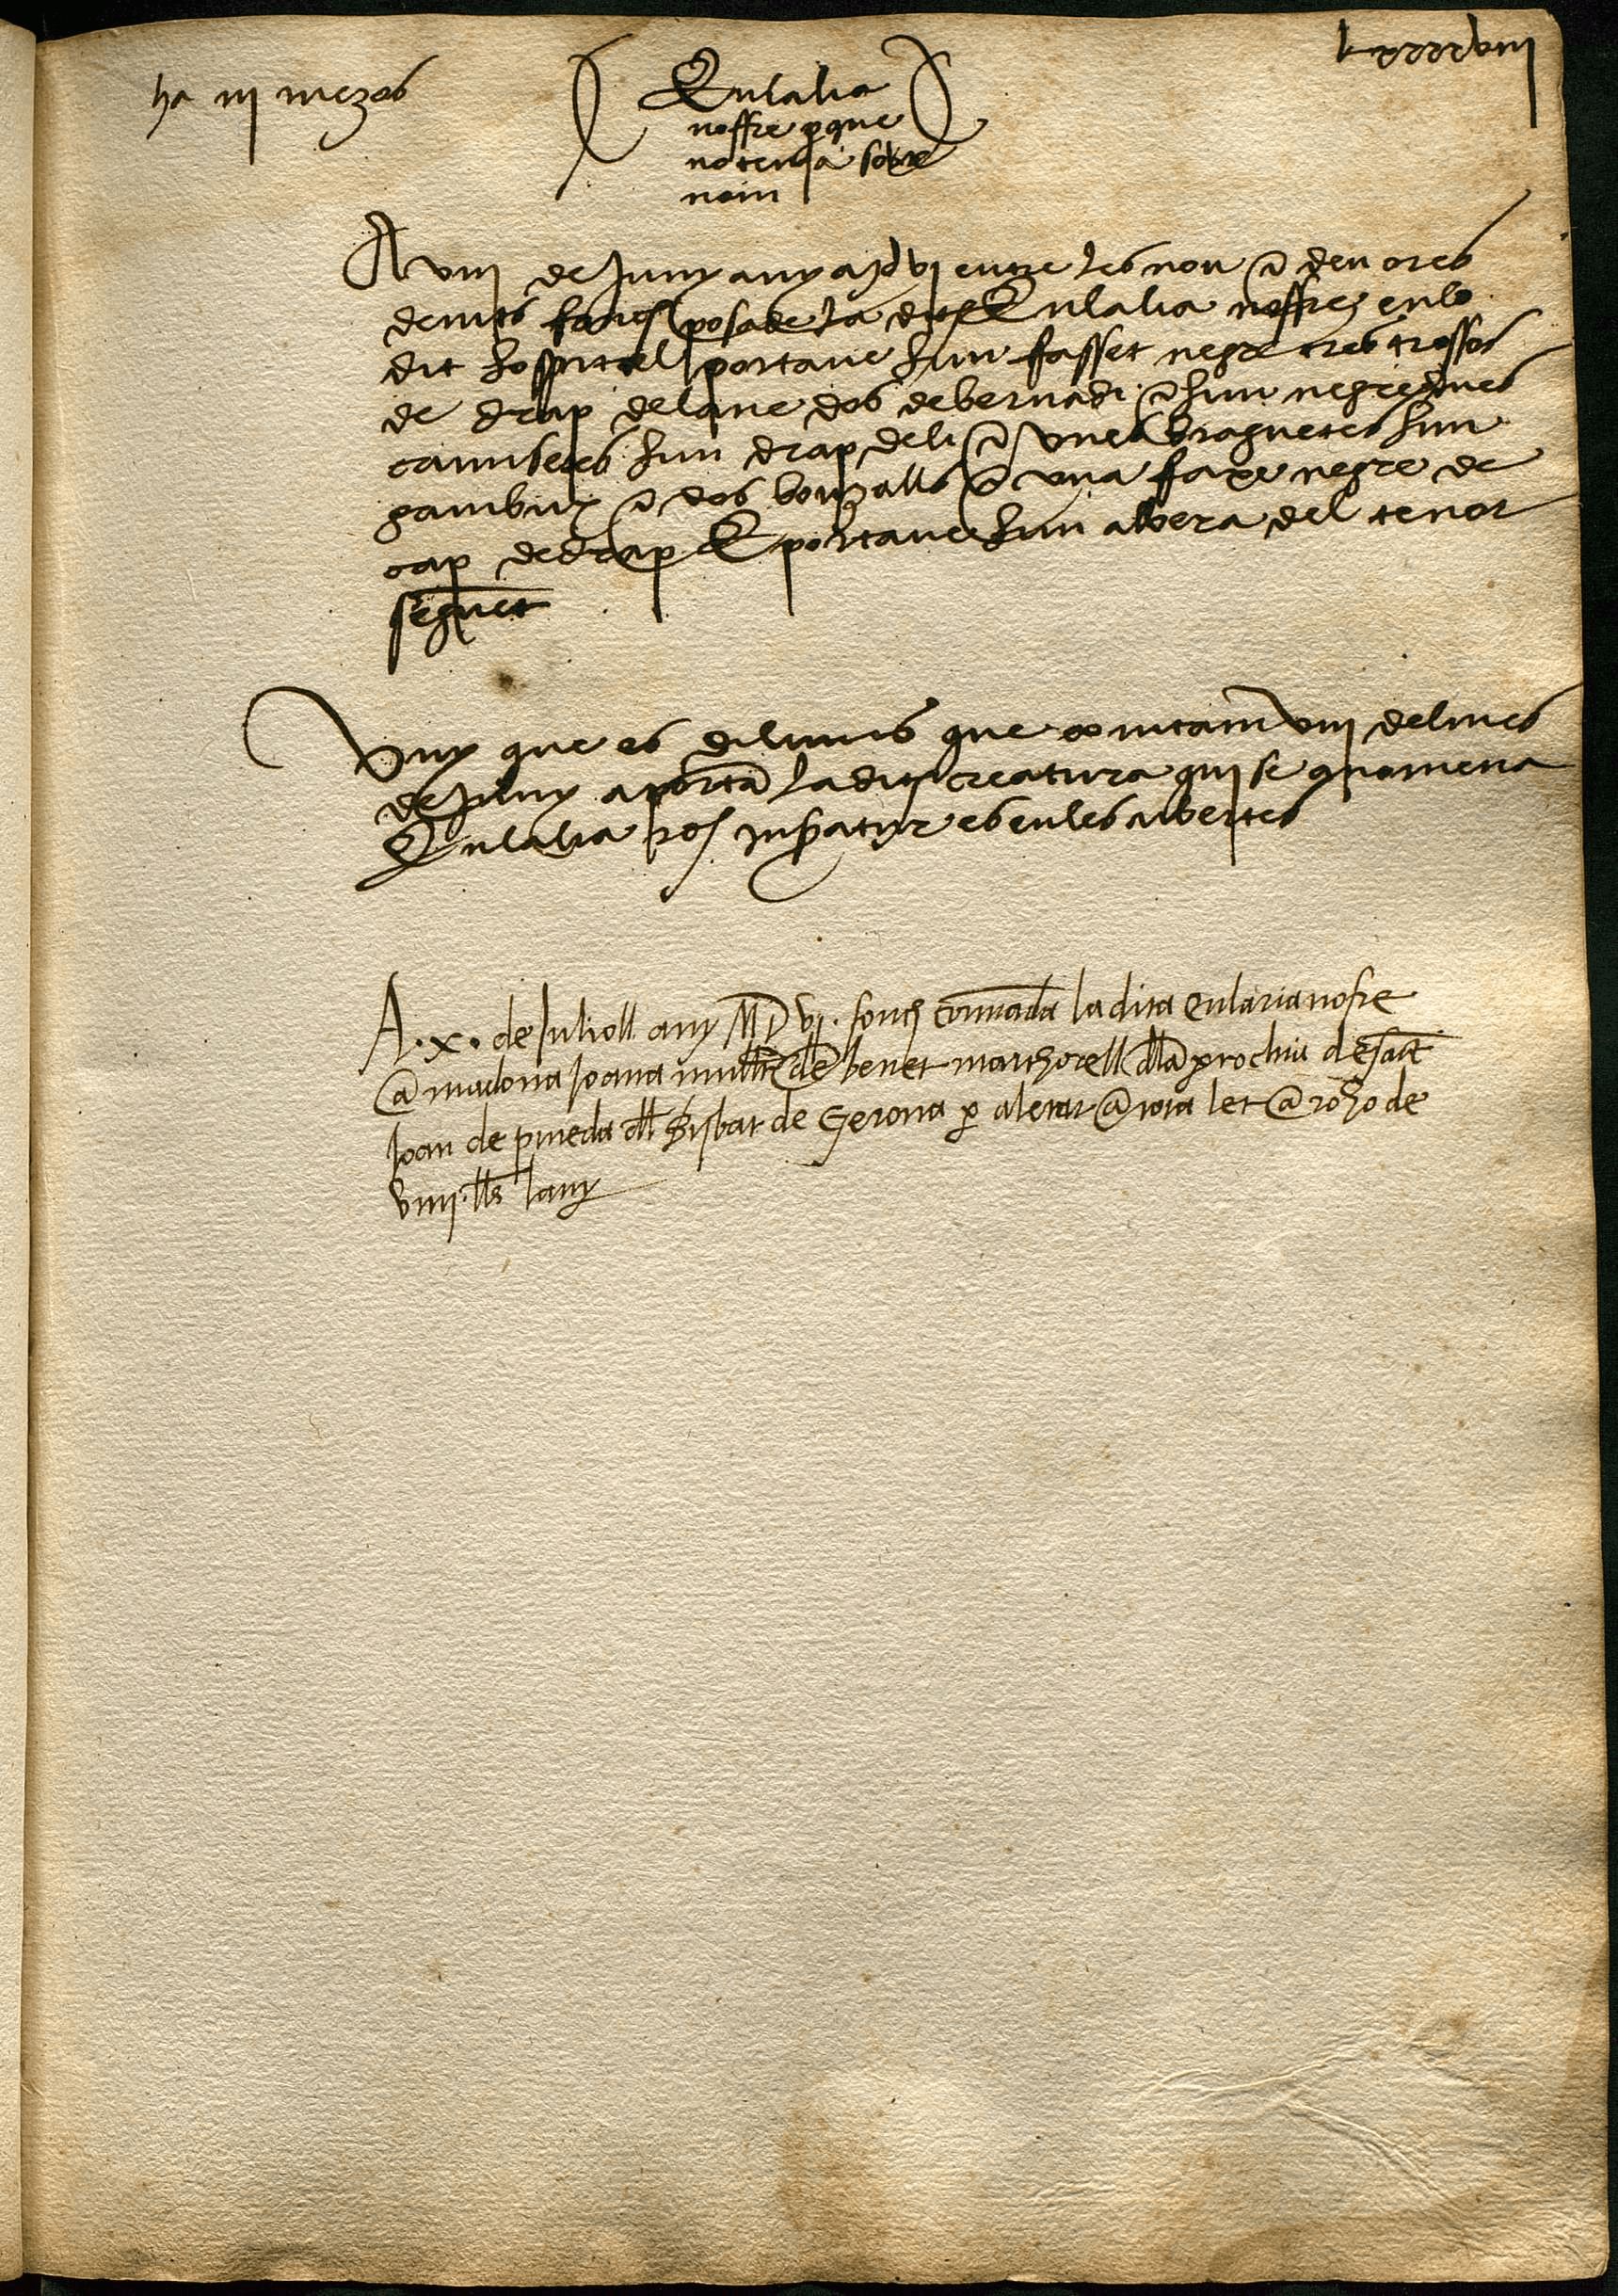 Lxxxxviii
ha iii mezos
Eulalia
noffre perque
no tenia sobre
nom
A viii de Juny any MDvi entre les nou e deu ores
de nits fonch posade la dita Eulalia noffre en lo
dit hospital portave hun fasset negre tres trossos
de drap de lane dos de bernadi e hun negre dues
camisetes hun drap de li e unes braguetes hun
gambux e dos bolqualls e una faxe negre de
cap de drap E portave hun albera del tenor
seguet
Vuy que es diluns que comtam viii del mes
de Juny aporta la dita creatura qui se anomena
Eulalia
A .x. de Julioll any MDvj. fonch comanada la dita eularia nofre
a madona Joana muller de benet marthorell dlla parochia de sact
Joan de pineda dll Bisbat de Gerona per aletar a tota let a raho de
viiij. lls lany